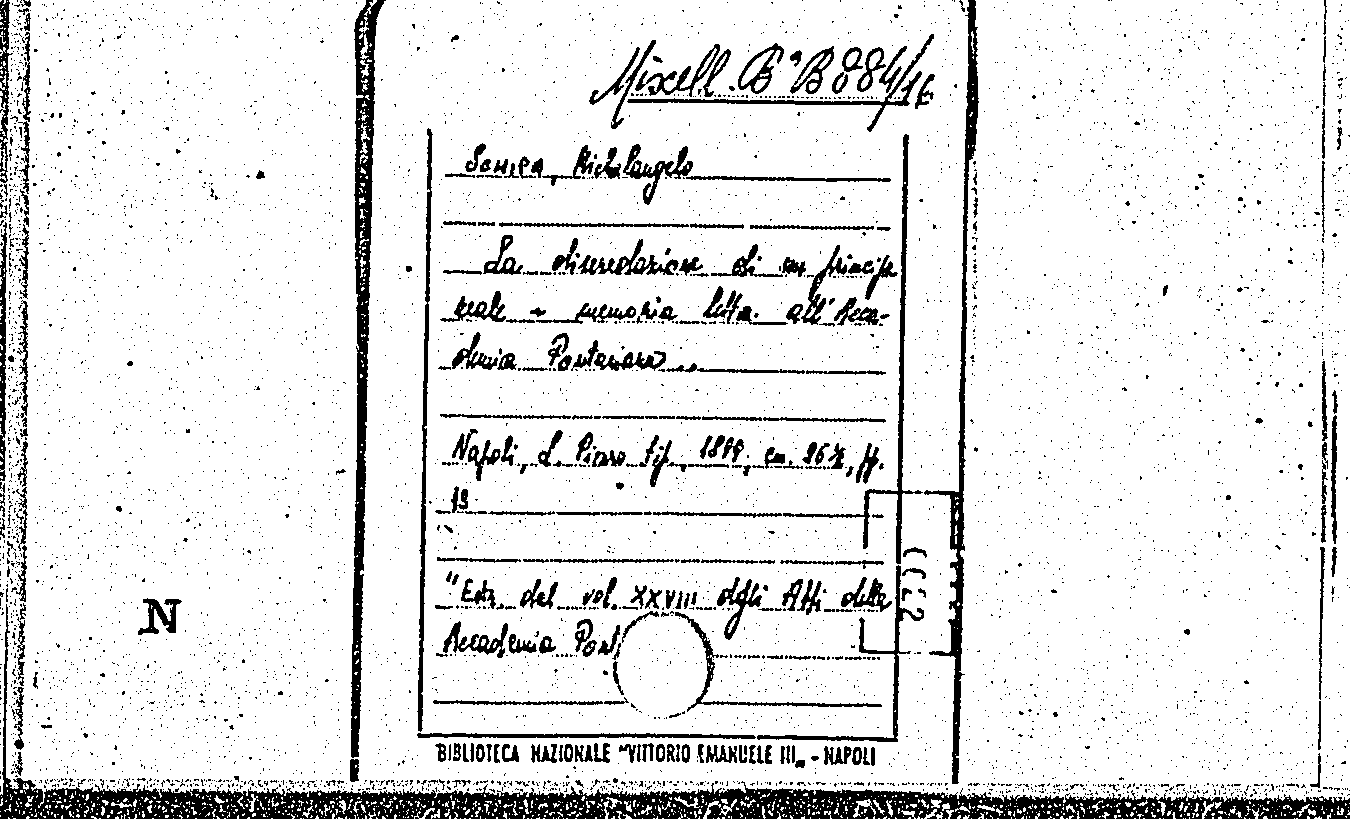 Miscell. Bª B 884/16
SCHIPA, Michelangelo
La diseredazione di un principe
reale - memoria letta all'Acca-
demia Pontaniana...
Napoli, tip., 1899, cm. 26½, pp.
19
"Estr. dal vol. XXVIII degli Atti della
Accademia Pont
N
BIBLIOTECA NAZIONALE "VITTORIO EMANUELE III„ - NAPOLI